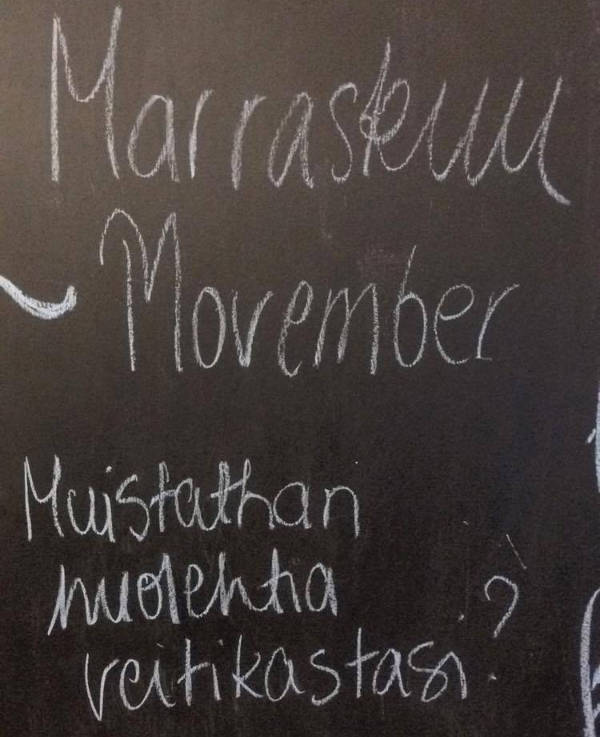 Marraskuu
Movember
Muistathan
huolehtia
veitikastasi?